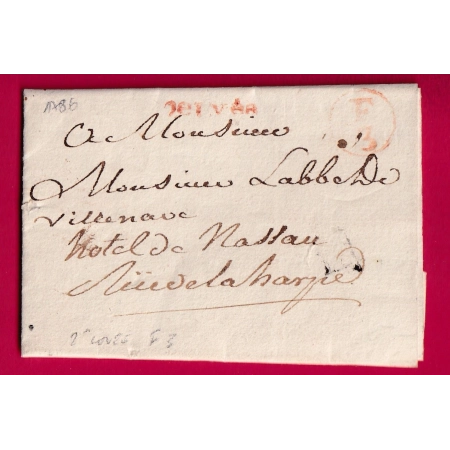 1786
2eLevée
F
3
a Monsieur
Monsieur Labbé De
Villenave
hotel de Nassau
Rüe de la harpe
2e LEVÉE F 3